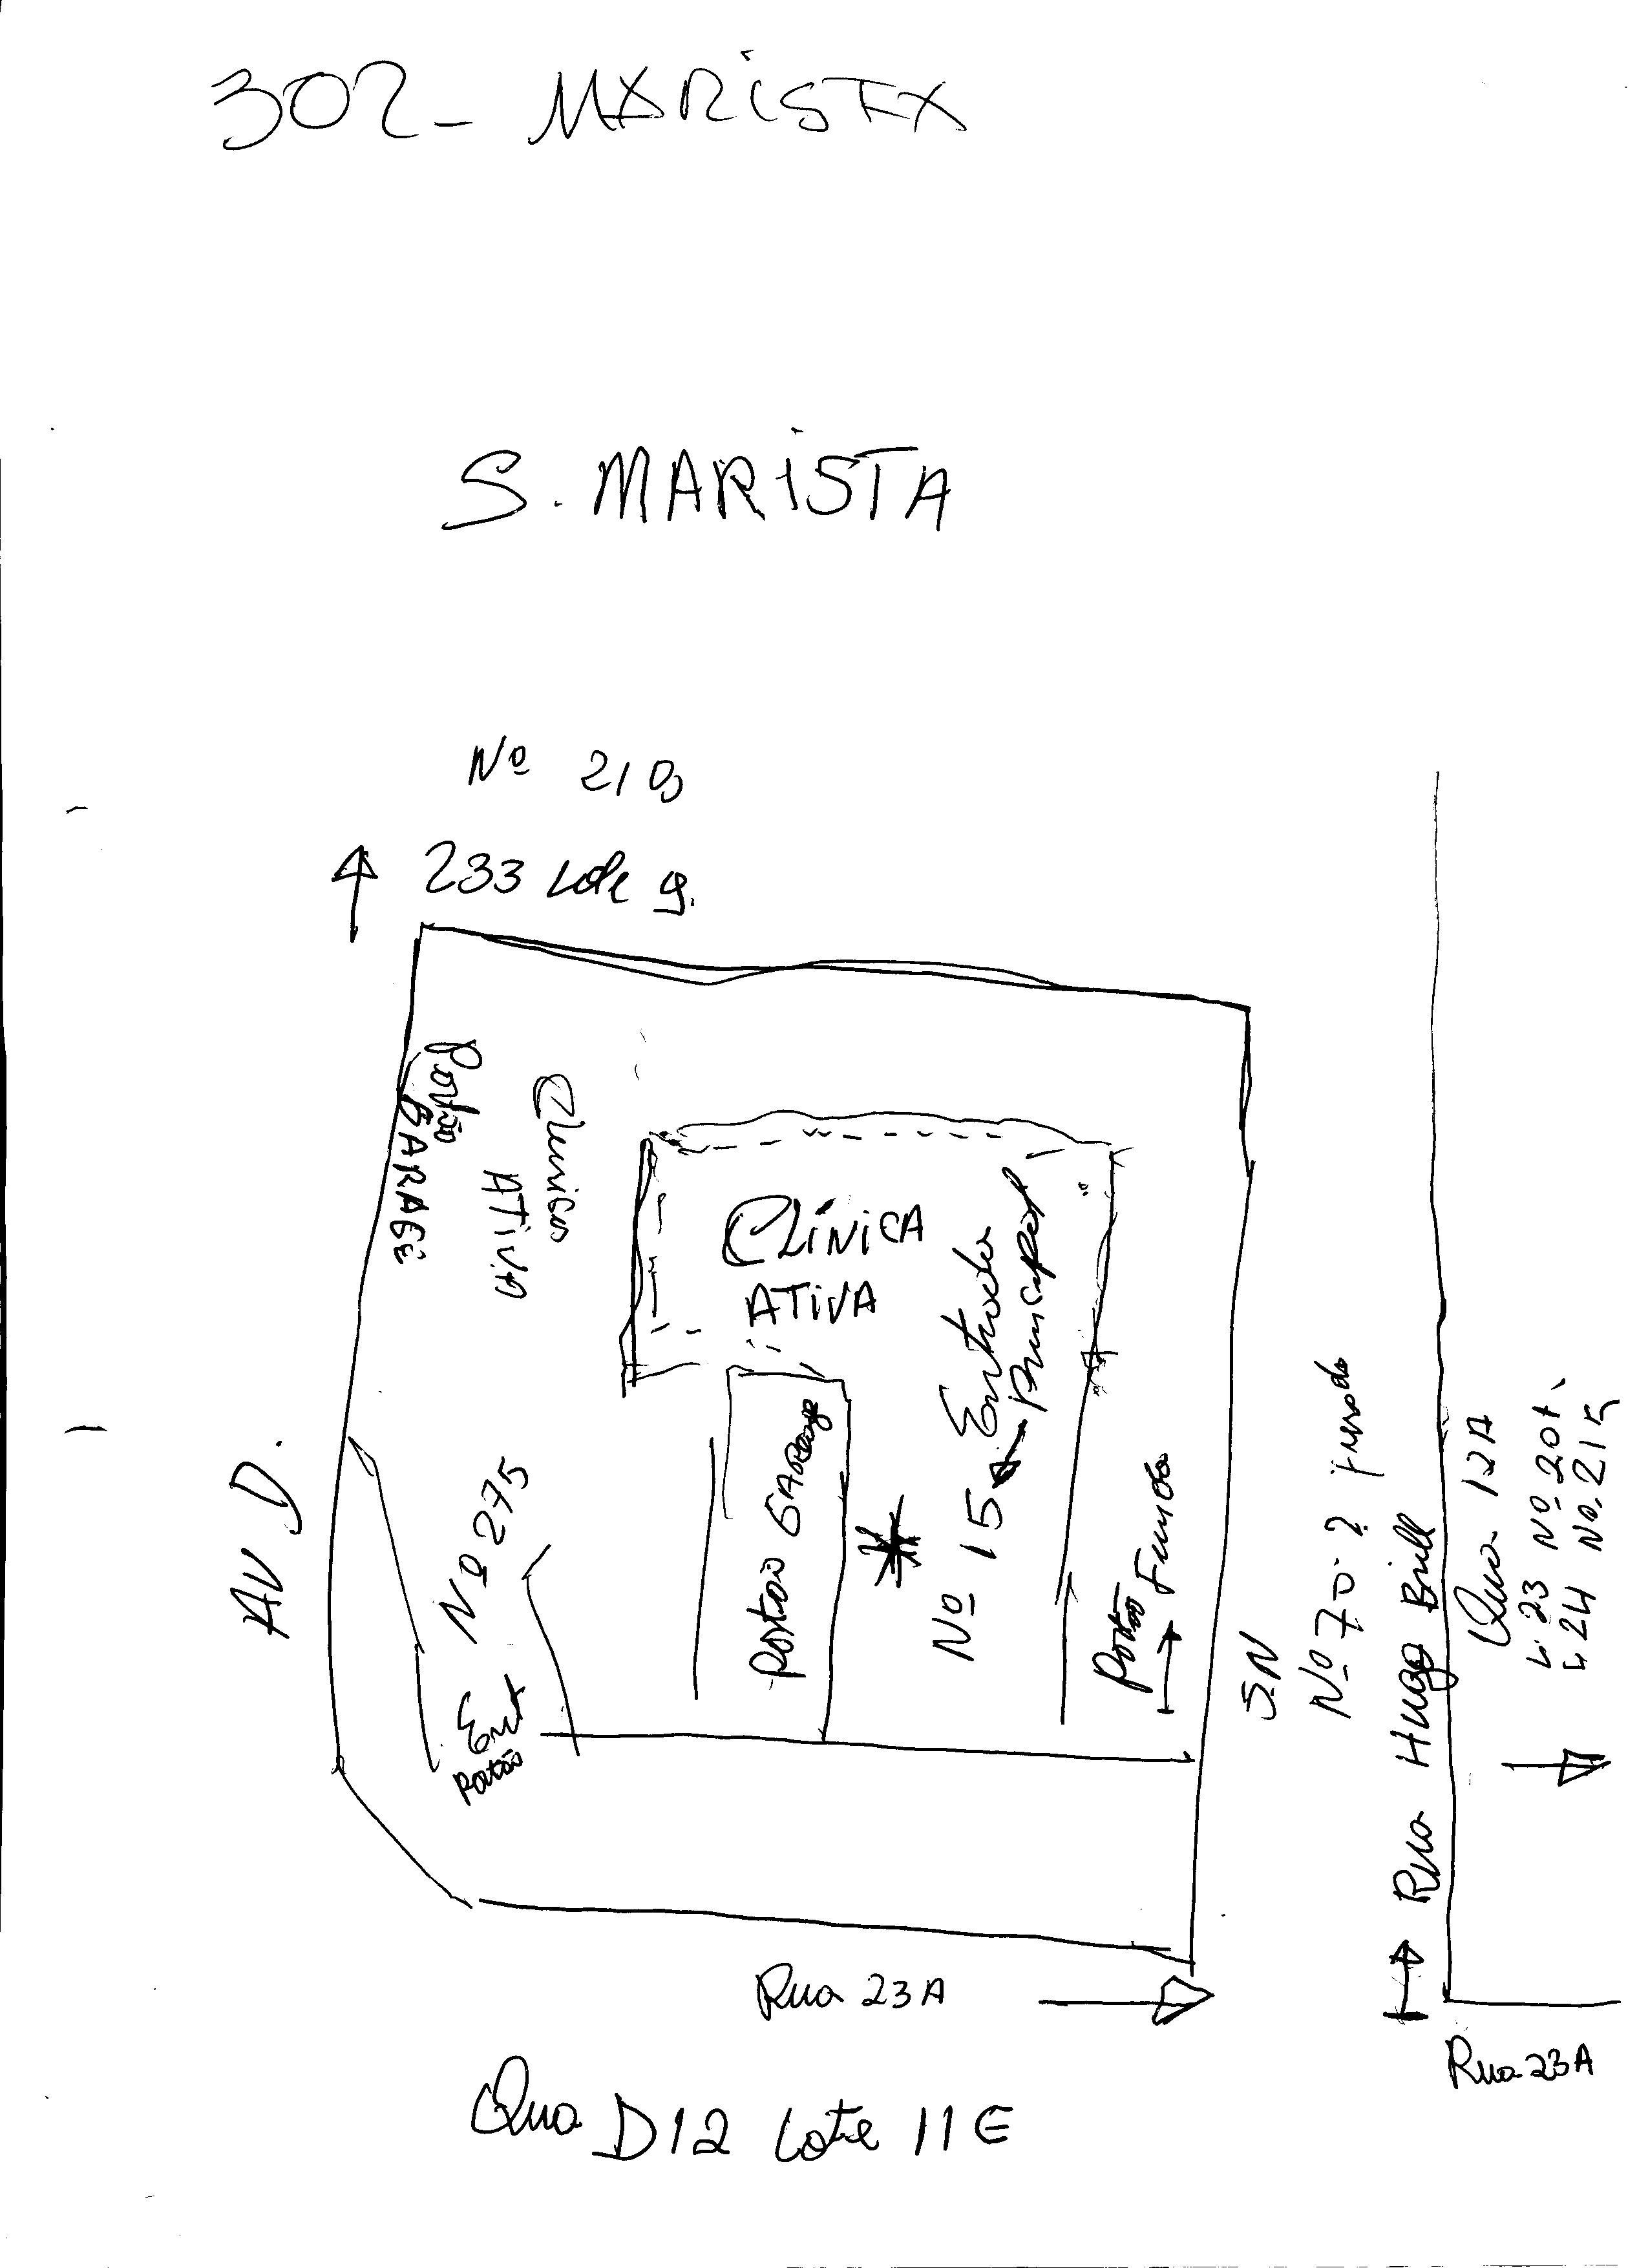 302 - MARISTA
S. MARISTA
Nº 210
233 Lote 9.
Portão
GARAGE
Clinica
ATIVA
CLÍNICA
ATIVA
Entrada
Principal
Nº 15
PORTÃO GARAGE
Portão Fundo
AV D.
Nº 275
Ent
Portão
SN
Nº 70 ? fundo
Rua Hugo Brill
Qua 12A
L 23 Nº 201
L 24 Nº 215
Rua 23A
Rua 23A
Qua D12 Lote 11E